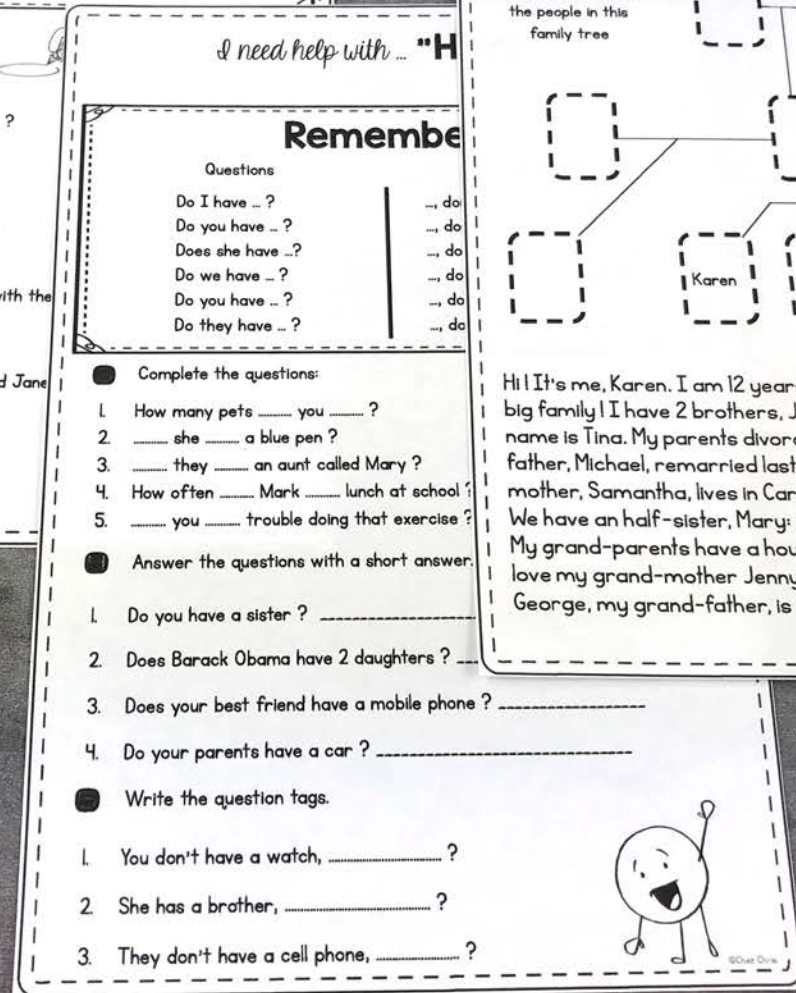 ?
ith the
d Jane
I need help with ... "H
Remembe
Questions
Do I have ... ?
Do you have ... ?
Does she have ...?
Do we have ... ?
Do you have ... ?
Do they have ... ?
..., do
..., do
..., do
..., do
..., do
..., do
Complete the questions:
1. How many pets ......... you ......... ?
2. ......... she ......... a blue pen ?
3. ......... they ......... an aunt called Mary ?
4. How often ......... Mark ......... lunch at school ?
5. ......... you ......... trouble doing that exercise ?
Answer the questions with a short answer.
1. Do you have a sister ? ____________
2. Does Barack Obama have 2 daughters ? ___
3. Does your best friend have a mobile phone ? ____________
4. Do your parents have a car ? ____________
Write the question tags.
1. You don't have a watch, ..................... ?
2. She has a brother, ..................... ?
3. They don't have a cell phone, ..................... ?
the people in this
family tree
Karen
Hi ! It's me, Karen. I am 12 year
big family ! I have 2 brothers, J
name is Tina. My parents divor
father, Michael, remarried last
mother, Samantha, lives in Car
We have an half-sister, Mary:
My grand-parents have a hou
love my grand-mother Jenny
George, my grand-father, is